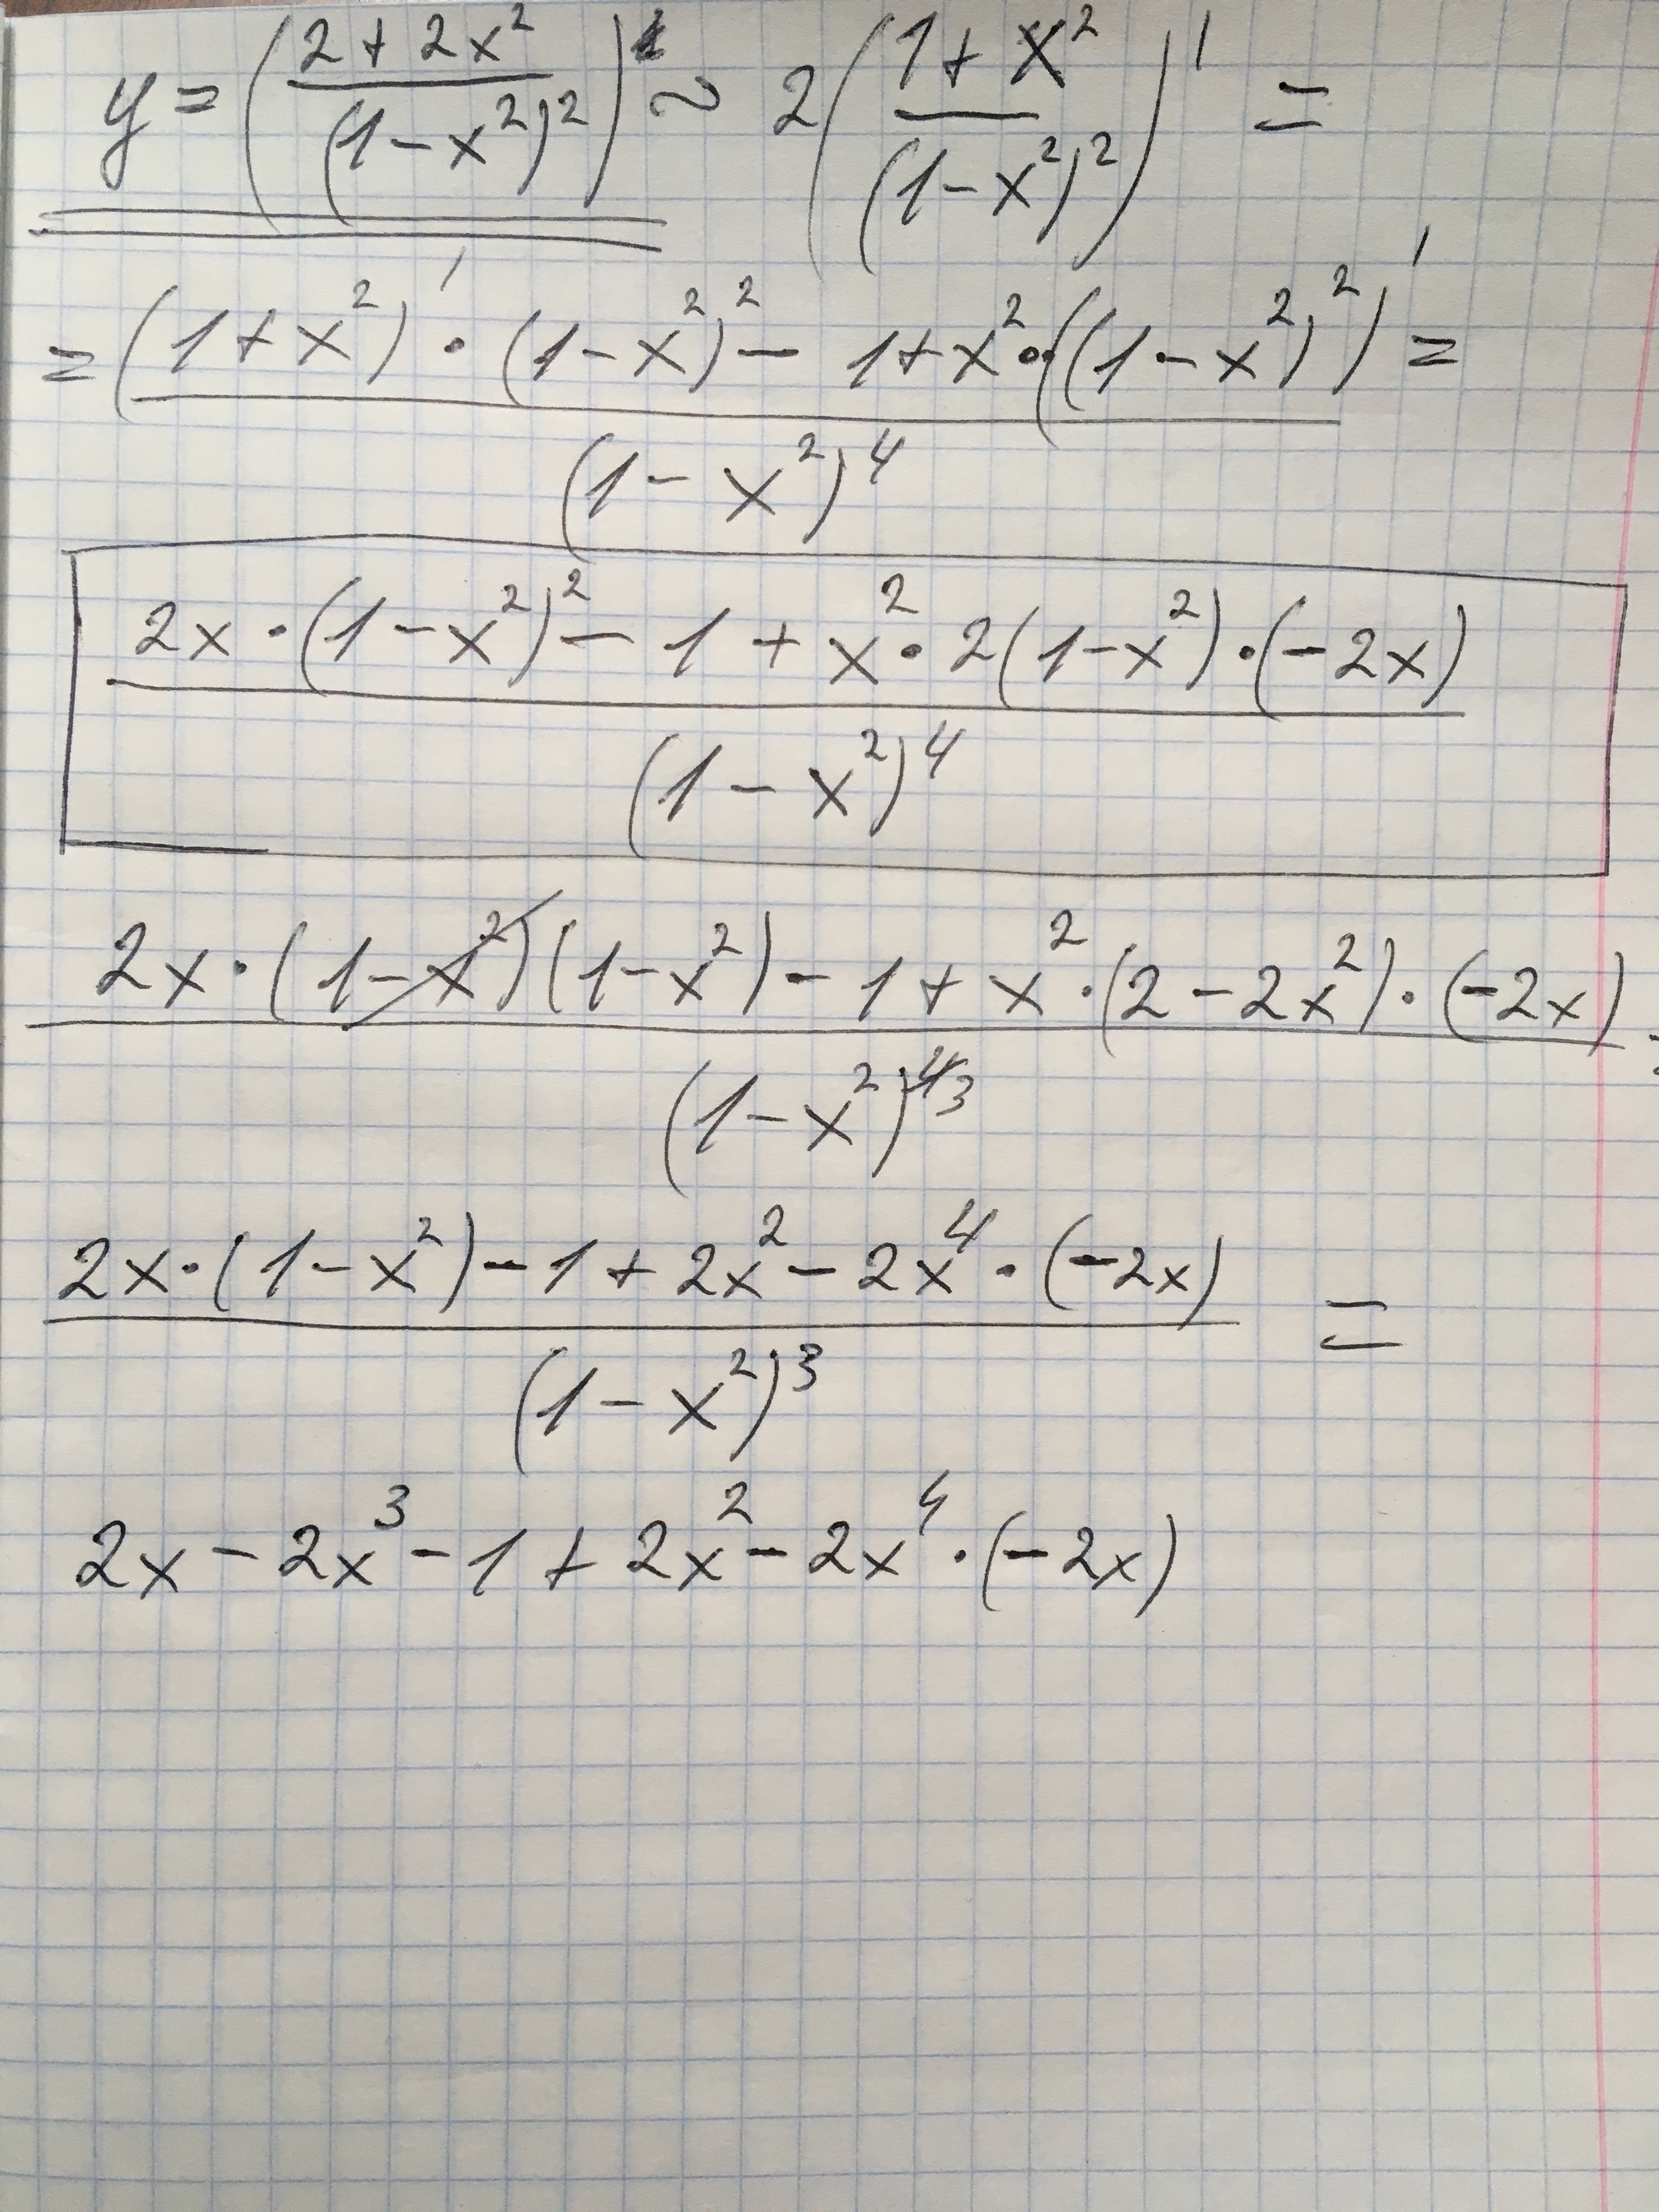 y = ( (2 + 2x²) / (1 - x²)² )' ~ 2 ( (1 + x²) / (1 - x²)² )' =
= (1 + x²)' · (1 - x²)² - 1 + x² · ((1 - x²)²)' =
(1 - x²)⁴
2x · (1 - x²)² - 1 + x² · 2(1 - x²) · (-2x)
(1 - x²)⁴
2x · (1 - x²)(1 - x²) - 1 + x² · (2 - 2x²) · (-2x)
(1 - x²)⁴ ³
2x · (1 - x²) - 1 + 2x² - 2x⁴ · (-2x) =
(1 - x²)³
2x - 2x³ - 1 + 2x² - 2x⁴ · (-2x)